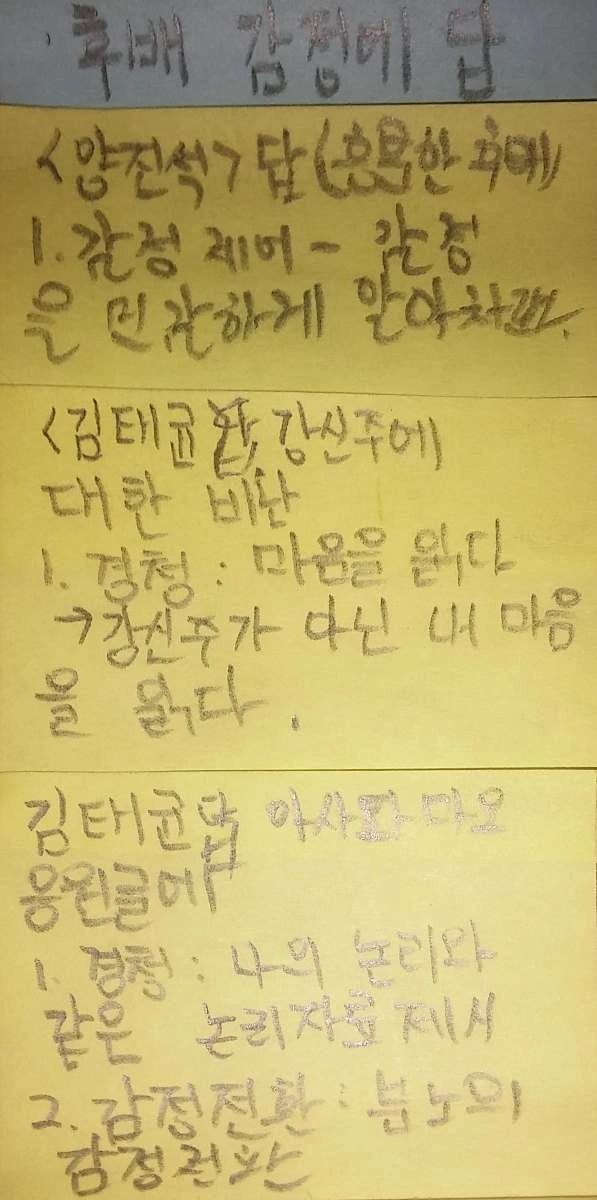 후배 감정에 답
<양진석> 답 (흥분한 후배)
1. 감정 제어 - 감정
을 민감하게 알아차려.
<김태균 답, 강신주에
대한 비난
1. 경청 : 마음을 읽다
→ 강신주가 아닌 내 마음
을 읽다.
김태균답 아사다 마오
응원글에
1. 경청 : 나의 논리와
같은 논리자료 제시
2. 감정전환 : 분노의
감정전환